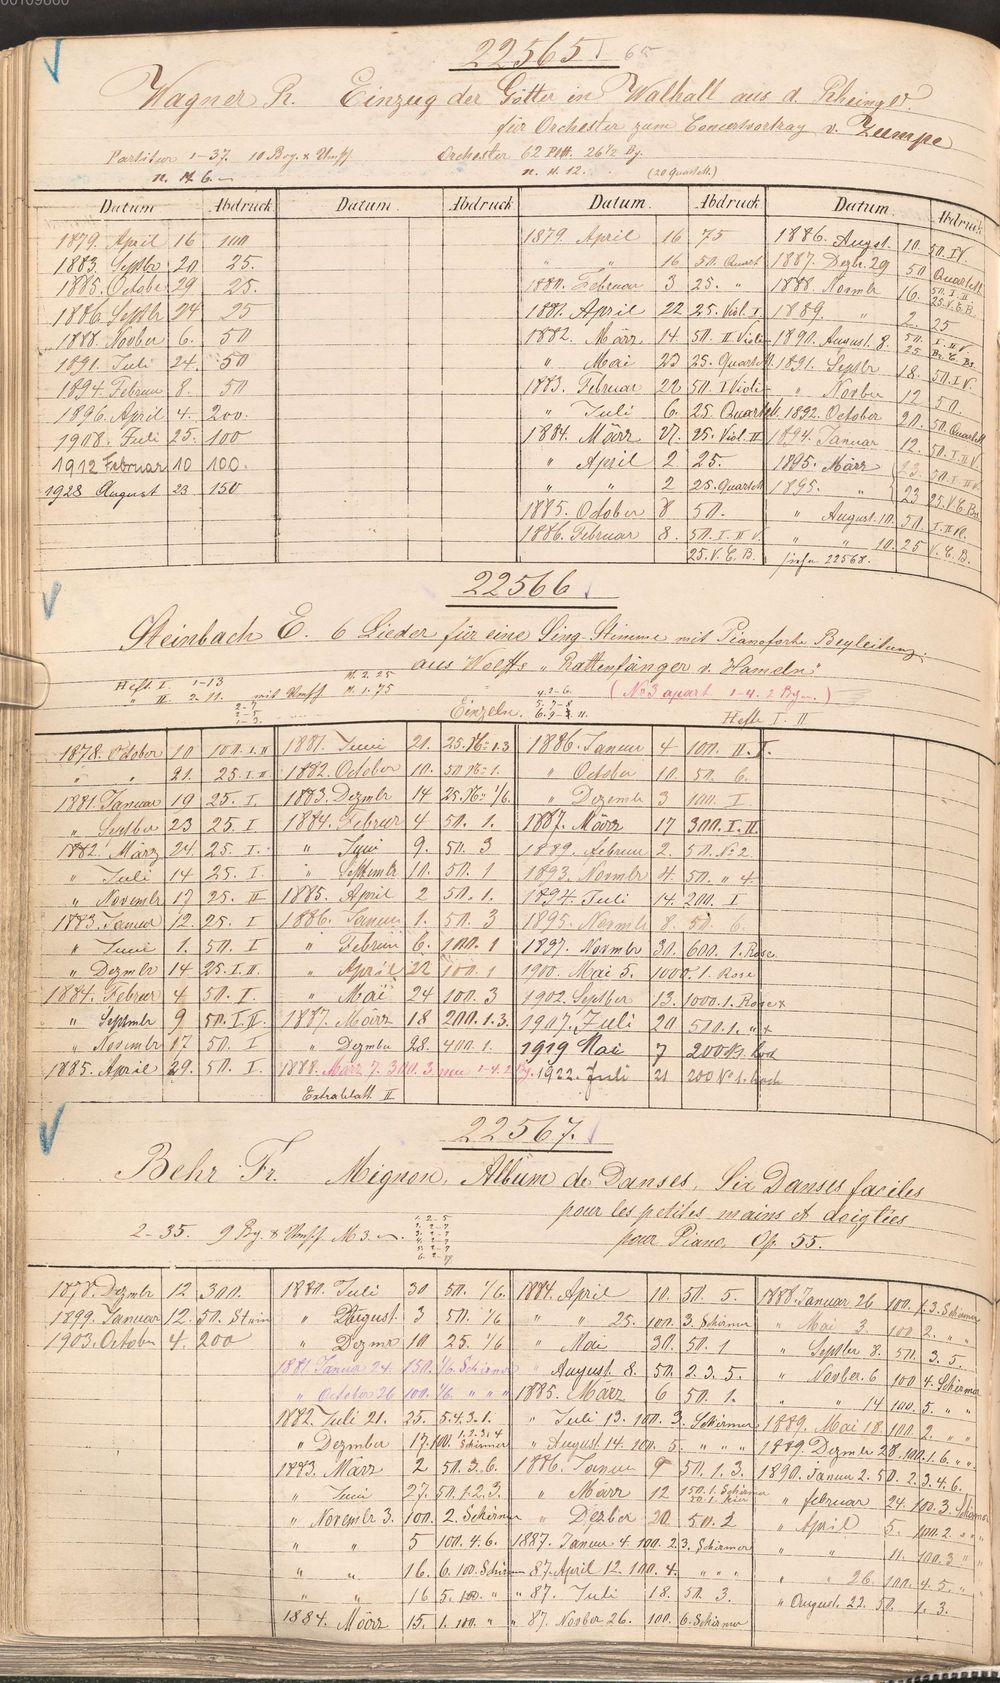 22565 I 65
Wagner R. Einzug der Götter in Walhall aus d. Rheingold
für Orchester zum Concertvortrag v. Zumpe
Partitur 1-37. 10 Bog. & Umschl Orchester 62 Pltt. 26 1/2 Bg.
n. M. 6.— n. M. 12. (20 Quartett.)
Datum Abdruck Datum. Abdruck Datum. Abdruck Datum. Abdruck
1879. April 16 100
1883. Septbr 20 25.
1885. October 29 25.
1886. Septbr 24 25
1888. Novber 6. 50
1891. Juli 24. 50
1894. Februar 8. 50
1896. April 4. 200.
1908. Juli 25. 100
1912 Februar 10 100.
1928 August 23 150
1879. April 16 75
" " 16 50. Quart
1880. Februar 3 25. "
1881. April 22 25. Viol. I
1882. März 14. 50. II Violi
" Mai 23 25. Quartett
1883. Februar 22 50. I Violi
" Juli 6. 25. Quartett
1884. März 27. 25. Viol. II
" April 2 25.
" " 2 25. Quartett
1885. October 8 50.
1886. Februar 8. 50. I. II V.
25. V. C. B.
1886. August. 10. 50. IV.
1887. Dezbr. 29 50 Quartett
1888. Novmbr 16. 50. I. II 25. V. C. B.
1889. " 2. 25
1890. August. 8. 50. I. II V. 25 Br. C. Bs
1891. Septbr 18. 50. I V.
" Novbr 12 50.
1892. October 20. 50. Quartett
1894. Januar 12. 50. I. II V.
1895. März 23. 50. I. II V.
1895. " 23 25. V. C. Bss
" August. 10. 50. I. II V.
" " 10. 25 V. C. B.
siehe 22568.
22566
Steinbach E. 6 Lieder für eine Sing-Stimme mit Pianoforte Begleitung.
aus Wolff's "Rattenfänger v. Hameln"
Heft. I. 1-13 M. 2. 25
" II. 2. 11. mit Umschl M. 1. 75 (No 3 apart 1-4. 2 Bgn.)
Einzeln. 4. 2-6. 5. 7-8 Hefte I. II
1878. October 10 100. I. II
" " 21. 25. I. II
1881. Januar 19 25. I.
" Septber 23 25. I
1882. März 24. 25. I.
" Juli 14 25. I
" Novembr 17 25. II
1883. Januar 12. 25. I
" Juni 1. 50. I
" Dezmbr 14 25. I. II.
1884. Februar 4 50. I.
" Septmbr 9 50. I. II.
" November 17 50. I
1885. April 29. 50. I.
1881. Juni 21. 25. No 1. 3
1882. October 10. 50 No 1.
1883. Dezmbr 14 25. No 1/6.
1884. Februar 4 50. 1.
" Juni 9. 50. 3
" Septembr 10. 50. 1
1885. April 2 50. 1.
1886. Januar 1. 50. 3
" Februar 6. 100. 1
" April 22 100. 1
" Mai 24 100. 3
1887. März 18 200. 1. 3.
" Dezmbr 28. 400. 1.
1888. März 7. 300. 3 neu 1-4. 2 Bg.
Extrablatt II
1886. Januar 4 100. II. I.
" October 10. 50. 6.
" Dezembr 3 100. I
1887. März 17 300. I. II.
1889. Februar 2. 50. No 2
1893. Novmbr 4 50. " 4.
1894. Juli 14. 200. I
1895. Novmbr 8. 50. 6.
1897. Novmber 30. 600. 1. Rose
1900. Mai 5. 1000. 1. Rose
1902. Septber 13. 1000. 1. Rose x
1907. Juli 20 500. 1. " x
1919 Mai 7 200 No 1. hoch
1922. Juli 21 200 No 1. hoch
22567.
Behr Fr. Mignon. Album de Danses. Six Danses faciles
pour les petites mains et doigtées
2-35. 9 Bg. & Umschl M 3.— pour Piano. Op. 55.
1878. Dezmbr 12 300.
1899. Januar 12. 50. Stein
1903. October 4. 200
1880. Juli 30 50. 1/6.
" August. 3 50. 1/6
" Dezmr 10 25. 1/6
1881. Januar 24. 150. 1/6. Schirmer
" October 26 100. 1/6. " " "
1882. Juli 21. 25. 5. 4. 3. 1.
" Dezember 17. 100. 1. 2. 3. 4 Schirmer
1883. März 2 50. 3. 6.
" Juni 27. 50. 1. 2. 3.
" Novembr 3. 100. 2. Schirmer
" " 5 100. 4. 6.
" " 16. 6. 100. Schirm
" " 16 5. 100. " "
1884. März 15. 1. 100. " "
1884. April 10. 50. 5.
" " 25. 100. 3. Schirmer
" Mai 30. 50. 1
" August. 8. 50. 2. 3. 5.
1885. März 6 50. 1.
" Juli 13. 100. 3. Schirmer
" August. 14. 100. 5. " " "
1886. Januar 9 50. 1. 3.
" März 12 150. 1. Schirmer 50. 1. hier
" Dezber 20. 50. 2
1887. Januar 4 100. 2 3. Schirmer
" 87. April 12. 100. 4. " " "
" 87. Juli 18. 50. 3.
" 87. Novber 26. 100. 6. Schirmer
1888. Januar 26 100. 1. 3. Schirmer
" Mai 3 100. 2. " "
" Septber 8. 50. 3. 5.
" Novber. 6 100 4. Schirmer
" " 14 100. 5. " "
1889. Mai 18. 100. 2. " "
1889. Dezmbr 28. 100. 1. 6. " "
1890. Januar 2. 50. 2. 3. 4. 6.
" Februar 24. 100. 3. Schirmer
" April 5. 100. 2. " "
" " 11. 100. 3 " "
" " 26. 100. 4. 5. "
" August. 22. 50. 1. 3.